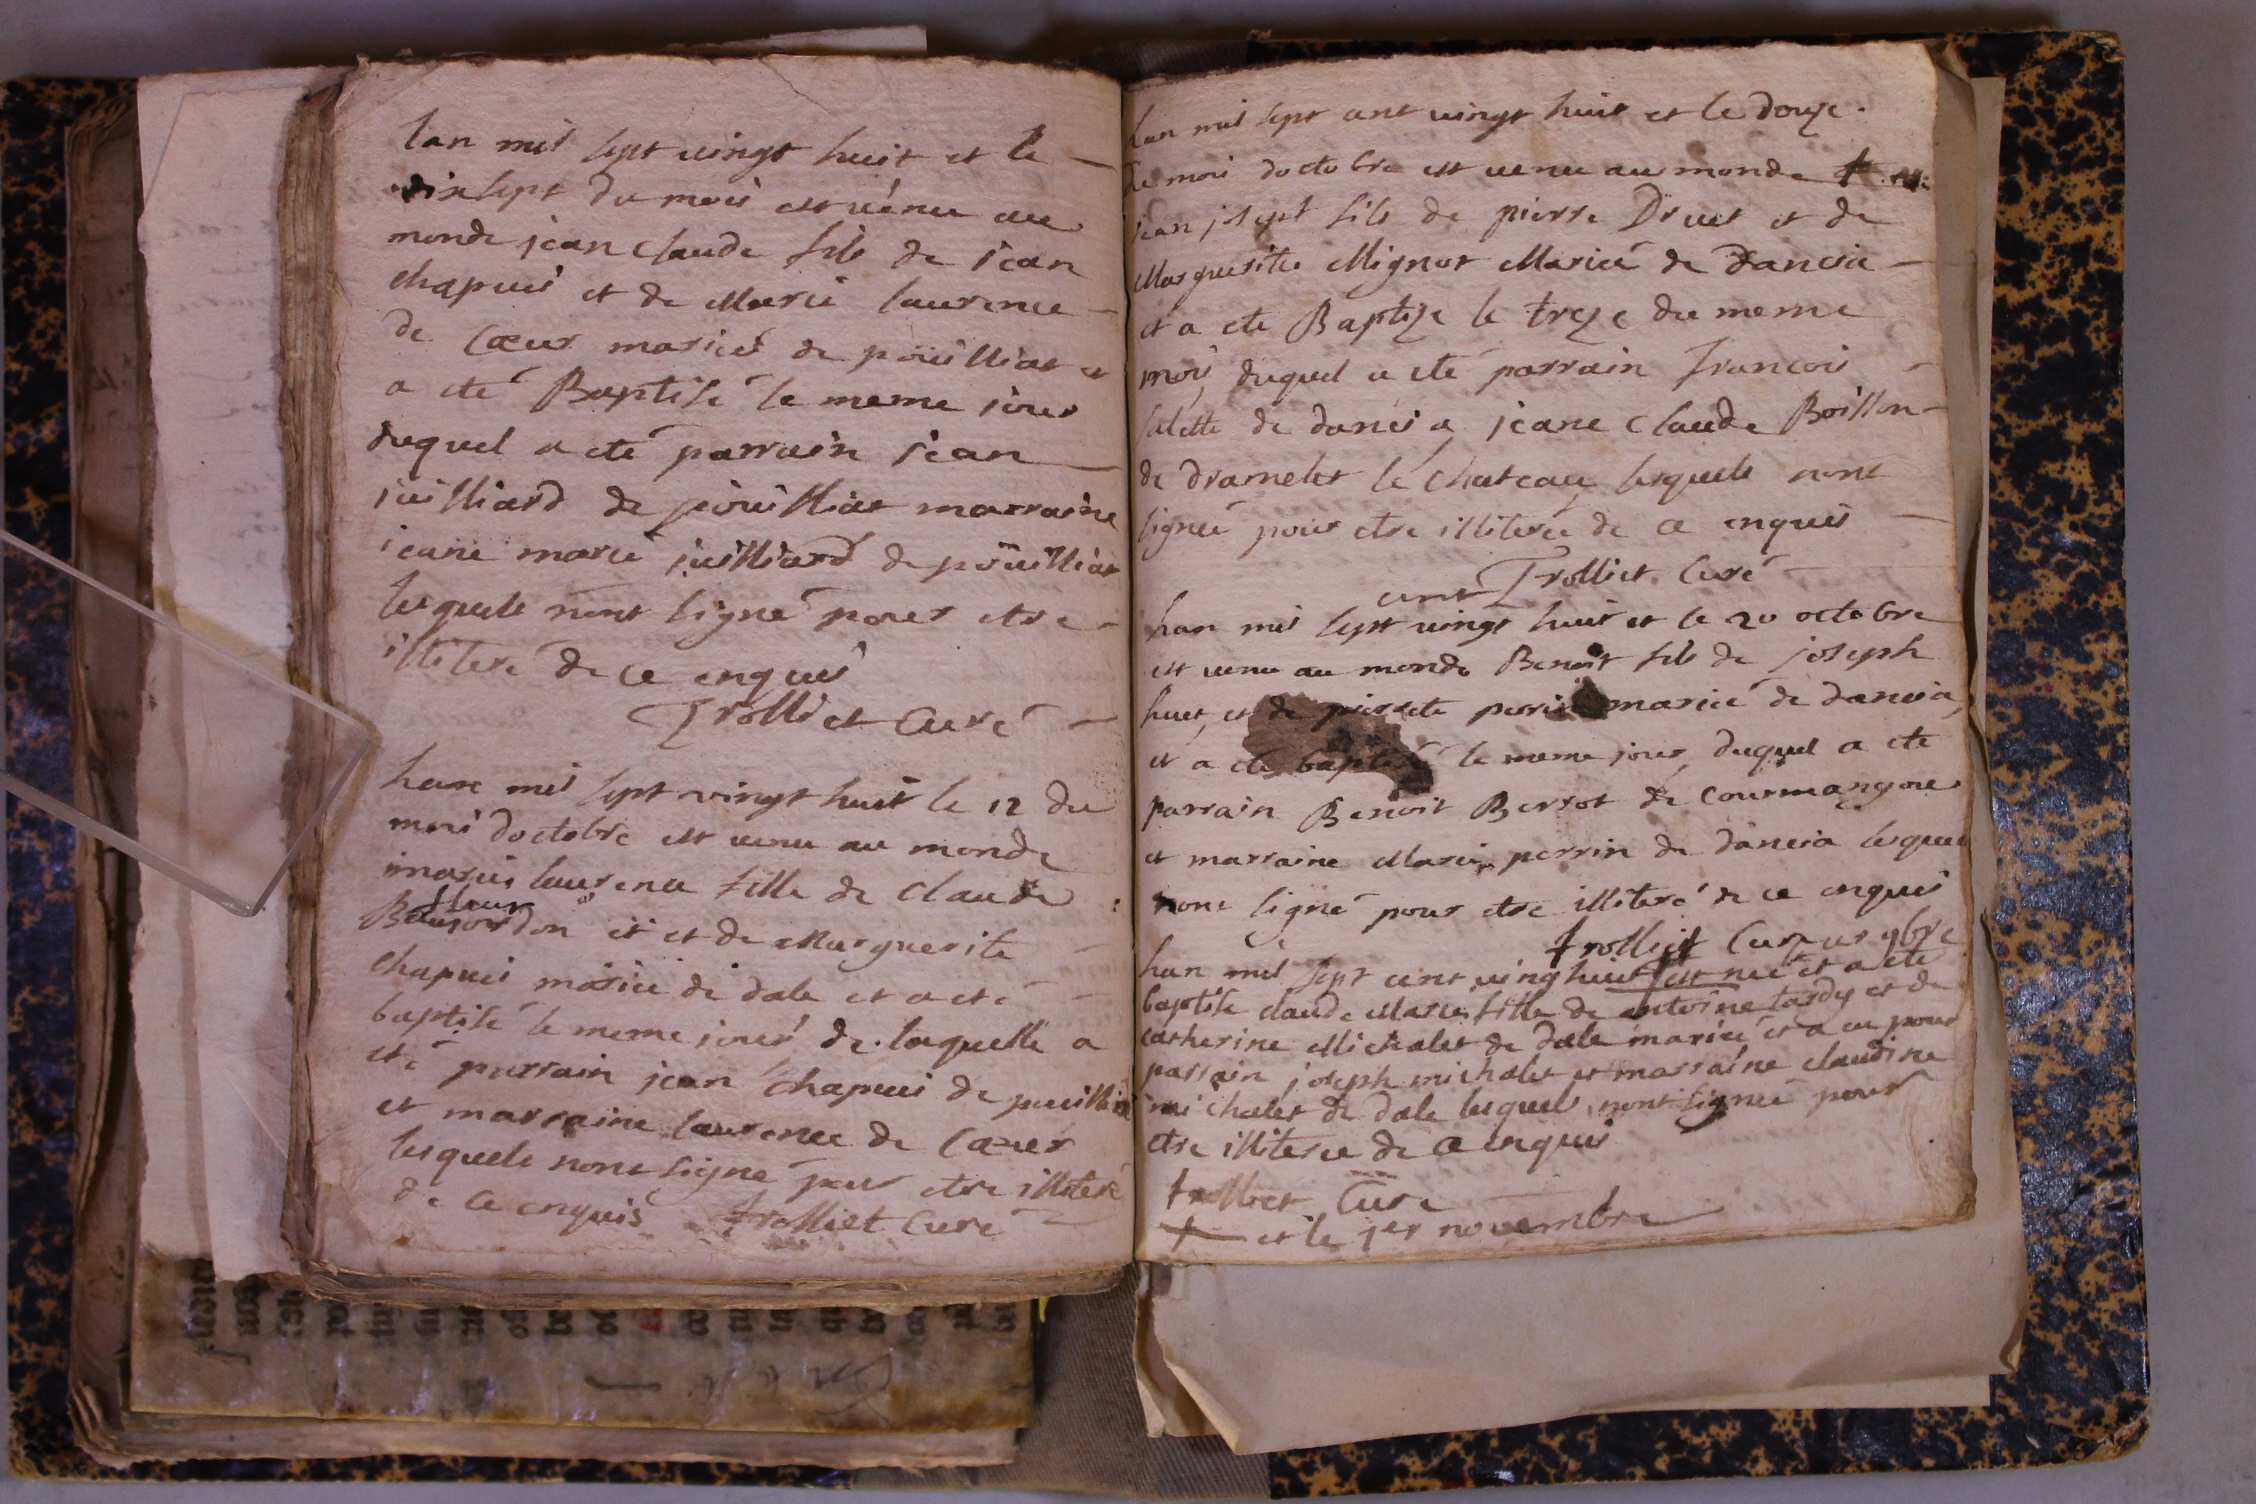 lan mil sept vingt huit et le
dixsept du mois est vénu au
monde jean claude fils de jean
chapuis et de Marie laurence
de Cœur mariés de poüilliat et
a été Baptisé le meme jour
duquel a eté parrain jean
juilliard de poüilliat marraine
jeane marie juilliard de poüilliat
lesquels nont signé pour etre
illiteré de ce enquis
Trolliet Curé
lan mil sept vingt huit le 12 du
mois doctobre est venu au monde
marie laurence fille de claude
fleur
Bourdon et et de Marguerite
chapuis mariée de dale et a eté
baptisé le meme jour de laquelle a
eté parrain jean chapuis de pouillia
et marraine laurence de Cœur
lesquels nont signé pour etre illiteré
de ce enquis trolliet Curé
Lan mil sept cent vingt huit et le douze
de mois doctobre est venu au monde
jean josept fils de pierre Druet et de
Marguerite Mignot Mariée de dancia
et a ete Baptize le treze du meme
mois duquel a eté parrain francois
salette de dancia jeane Claude Boisson
de dramelet le chateau lesquels nont
signée pour etre illiterée de ce enquis
Trolliet Curé
cent
lan mil sept vingt huit et le 20 octobre
est venu au monde Benoit fils de joseph
huet et de pierrete perrin mariée de dancia
et a eté baptisé le meme jour duquel a ete
parrain Benoit Berrot de Courmangoue
et marraine Marie perrin de dancia lesquel
nont signé pour etre illiteré de ce enquis
trolliet Curé 9bre
lan mil sept cent ving huit est neé et a ete
baptise claude Marie fille de antoine tardy et de
catherine Michalet de dale mariée et a eu pour
parrain joseph michalet et marraine claudine
michalet de dale lesquels nont signée pour
etre illiterée de ce enquis
trolliet Cure
et le 1er novembre